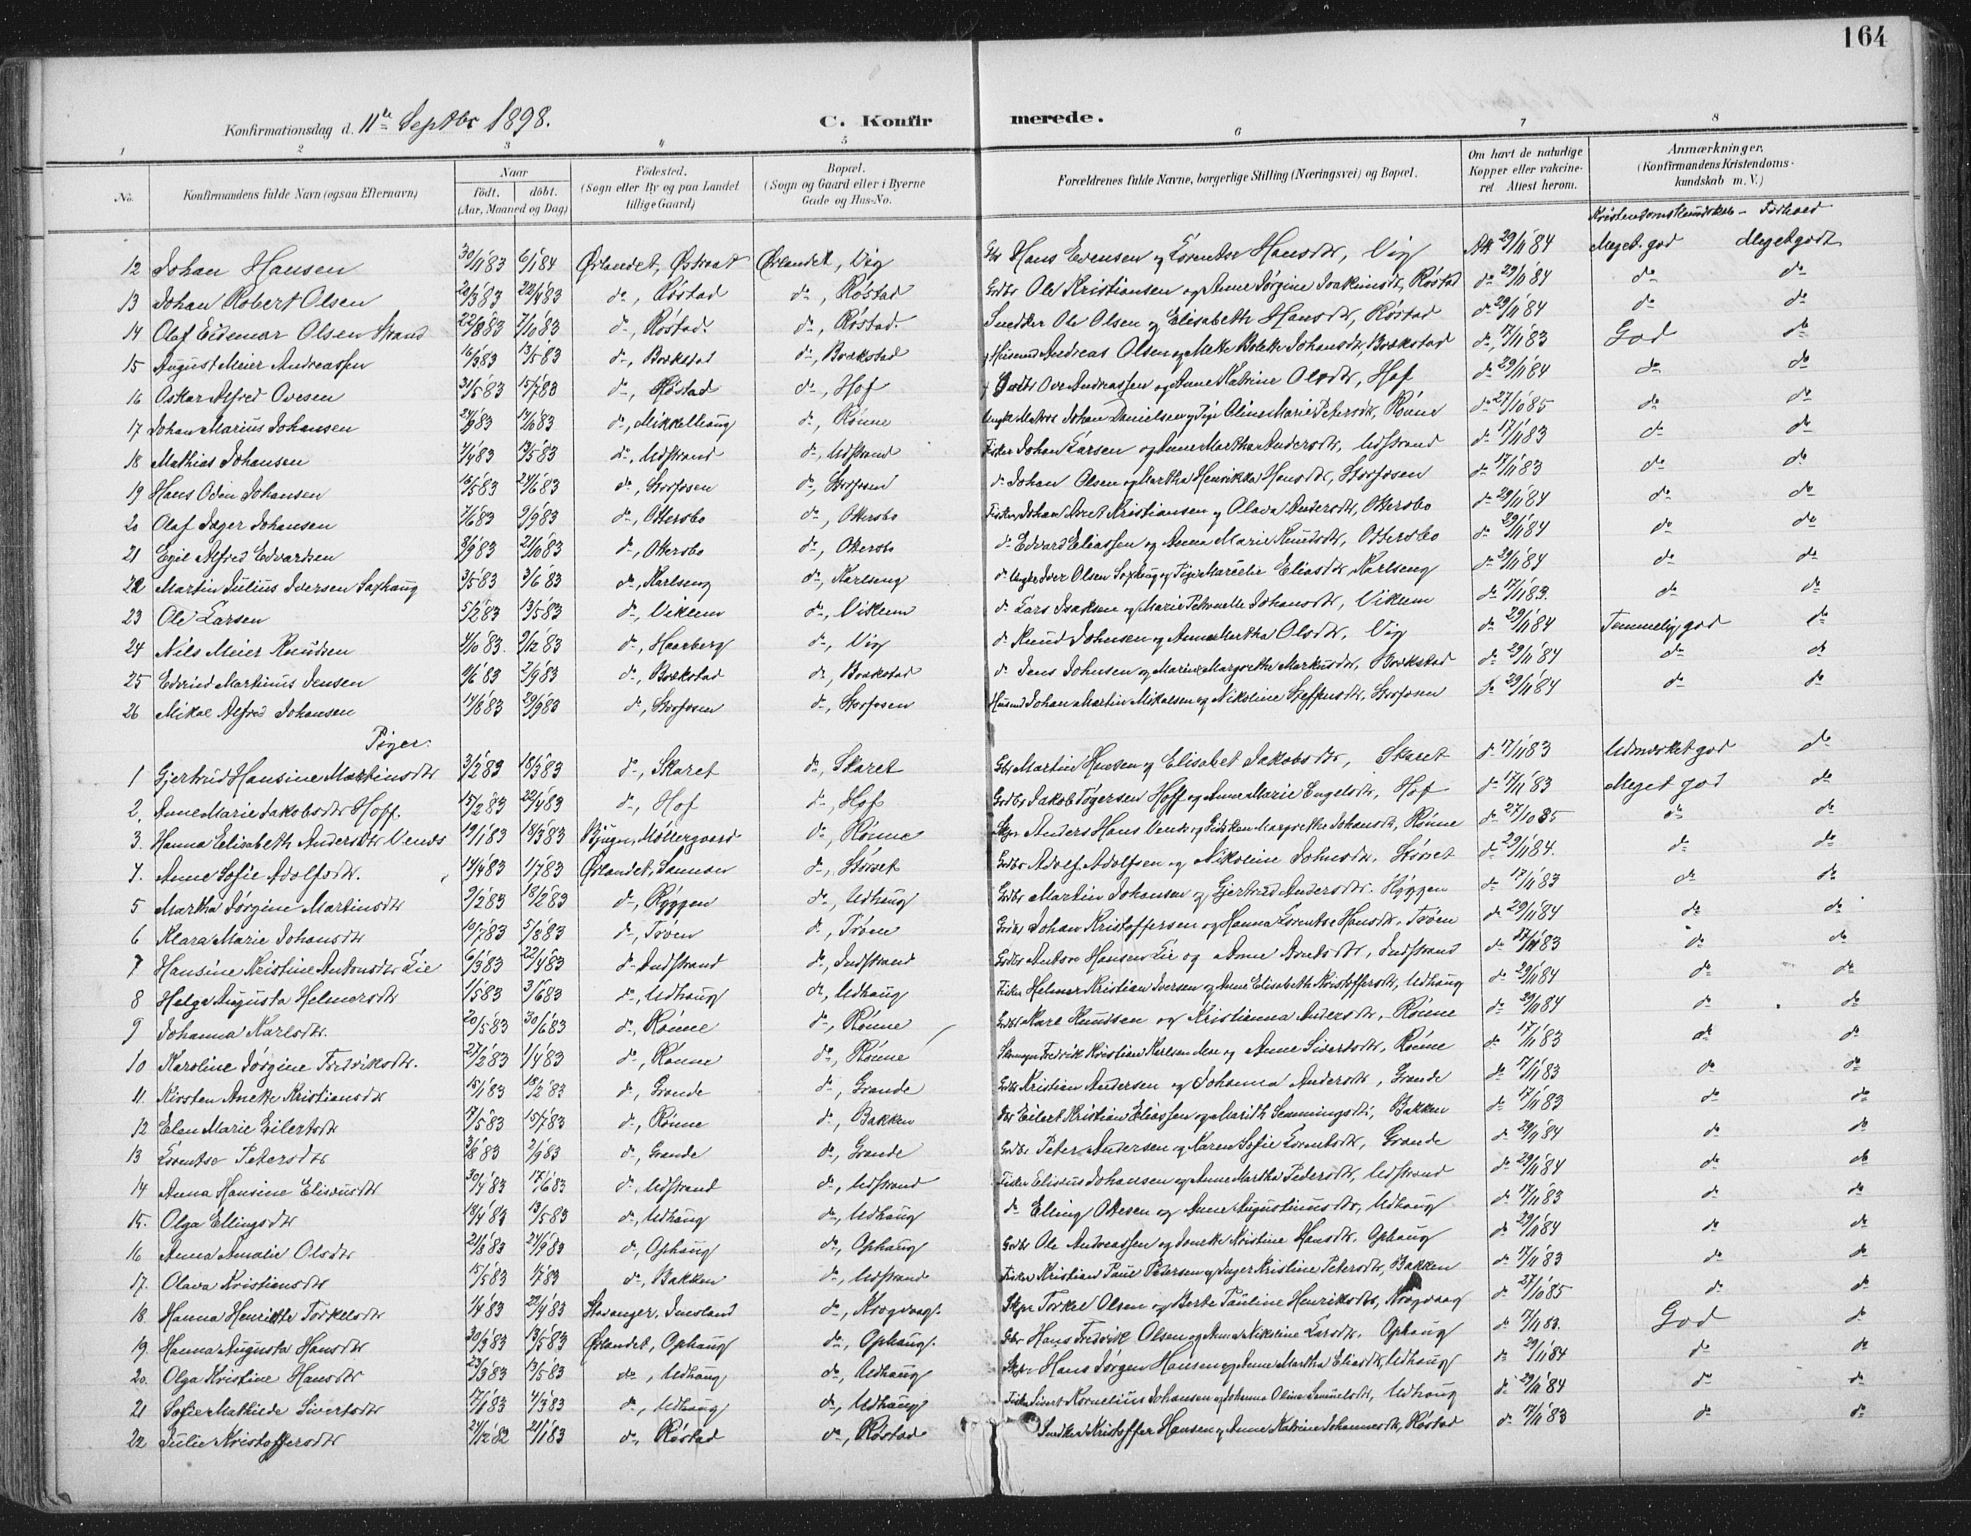 164
Konfirmationsdag d. 11te Septbr 1898. C. Konfirmerede.
1 2 3 4 5 6 7 8
No. Konfirmandens fulde Navn (ogsaa Efternavn) Naar født. døbt. (Aar, Maaned og Dag) Fødested. (Sogn eller By og paa Landet tillige Gaard) Bopæl. (Sogn og Gaard eller i Byerne Gade og Hus-No. Forældrenes fulde Navne, borgerlige Stilling (Næringsvei) og Bopæl. Om havt de naturlige Kopper eller vakcineret Attest herom. Anmærkninger. (Konfirmandens Kristendomskundskab m. V.)
Kristendomskundskab - Forhold
12 Johan Hansen 30/11 83 6/1 84 Ørlandet, Østraat Ørlandet, Vig Hans Evensen og Lorentse Hansdtr, Vig Att 29/11 84 Meget god Meget godt
13 Johan Robert Olsen 20/3 83 22/4 83 do, Røstad do, Røstad Gdbr Ole Kristiansen og Anne Jørgine Joakimsdtr, Røstad do 29/11 84 do do
14 Olaf Eidemar Olsen Strand 22/8 83 7/10 83 do, Røstad. do, Røstad. Snedker Ole Olsen og Elisabeth Hansdtr, Røstad do 29/11 84 do do
15 August Meier Andreassen 16/3 83 13/5 83 do, Brækstad do, Brækstad Husmd Andreas Olsen og Mette Bolette Johansdtr, Brækstad do, 17/11 83 God do
16 Oskar Alfred Ovesen 31/5 83 15/7 83 do, Røstad do, Hof Ove Andreassen og Anne Katrine Olsdtr, Hof do 29/11 84 do do
17 Johan Marius Johansen 24/9 83 14/10 83 do, Mikkelhaug do, Rønne Ungk Matros Johan Danielsen og Pige Oline Marie Petersdtr, Rønne do 27/10 85 do do
18 Mathias Johansen 7/4 83 13/5 83 do, Udstrand do, Udstrand Fisker Johan Larsen og Anne Martha Andersdtr, Udstrand do 17/11 83 do do
19 Hans Odin Johansen 15/5 83 24/6 83 do, Storfosen do, Storfosen do Johan Olsen og Martha Henrikka Hansdtr, Storfosen do 17/11 83 do do
20 Olaf Jæger Johansen 7/6 83 2/9 83 do, Ottersbo do, Ottersbo Fisker Johan Arnt Kristiansen og Olava Andersdtr, Ottersbo do 29/11 84 do do
21 Egil Alfred Edvardsen 8/9 83 21/10 83 do, Ottersbo do, Ottersbo do Edvard Eliassen og Anna Marie Knudsdtr, Ottersbo do 29/11 84 do do
22 Martin Julius Iversen Saxhaug 3/5 83 3/6 83 do, Karlseng do, Karlseng do Ungk Iver Olsen Saxhaug og Pige Marselie Eliasdtr, Karlseng do 29/11 84 do do
23 Ole Larsen 5/2 83 13/5 83 do, Viklem do, Viklem do Lars Isaksen og Marie Petronelle Johansdtr, Viklem do 17/11 83. do do
24 Nils Meier Knudsen 4/10 83. 9/12 83 do, Haarberg do, Vig do Knud Johnsen og Anne Martha Olsdtr, Vig do 29/11 84 Temmelig god do
25 Edvind Martinus Jensen 9/6 83 2/9 83 do, Brækstad do, Brækstad do Jens Johnsen og Marie Margrethe Markusdtr, Brækstad do 29/11 84 do do
26 Mikal Alfred Johansen 14/8 83 23/9 83 do, Storfosen do, Storfosen Husmd Johan Martin Mikalsen og Nikoline Steffensdtr, Storfosen do 29/11 84 do do
Piger.
1 Gjertrud Hansine Martinsdtr 3/2 83 18/3 83 do, Skaret do, Skaret Gbr Martin Hansen og Elisabet Jakobsdtr, Skaret do 17/11 83 Udmærket god do
2. Anne Marie Jakobsdtr Hoff. 15/2 83 22/4 83 do, Hof do, Hof Gdbr Jakob Tøgersen Hoff og Anne Marie Engelsdtr, Hof do 17/11 83 Meget god do
3. Hanna Elisabeth Andersdtr Venes 19/1 83 18/3 83 Bjugn, Møllergaard do, Rønne Anders Hans Venes og Margrethe Johansdtr, Rønne do 27/10 85 do do
4. Anne Sofie Adolfsdtr. 14/4 83 1/7 83 Ørlandet, do, Størset Gdbr Adolf Adolfsen og Nikoline Johnsdtr, Størset do 29/11 84. do do
5 Martha Jørgine Martinsdtr 9/2 83 18/2 83 do, Ryggen do, Udhaug Gdbr Martin Johansen og Gjertrud Andersdtr. Ryggen do 17/11 83 do do
6 Klara Marie Johansdtr 10/7 83 5/8 83 do, Trøen do, Trøen Gdbr Johan Kristoffersen og Hanna Lorentse Hansdtr. Trøen do 29/11 84 do do
7 Hansine Kristine Antonsdtr Lie 6/3 83 22/4 83 do Indstrand do, Indstrand Gdbr Anton Hansen Lie og Anne Arntsdtr, Indstrand do 17/11 83 do do
8 Helga Augusta Helmersdtr 1/5 83 3/6 83 do, Udhaug do, Udhaug Fisker Helmer Kristian Iversen og Anne Elisabeth Kristoffersdtr, Udhaug do 29/11 84 do do
9 Johanna Karlsdtr. 20/5 83 30/6 83 do, Rønne do, Rønne Gdbr Karl Knudsen og Kristianna Andersdtr, Rønne do 29/11 84 do do
10 Karoline Jørgine Fredriksdtr. 27/2 83 1/4 83 do, Rønne do, Rønne Fredrik Kristian Karlsen og Anne Sivertsdtr, Rønne do 17/11 83 do do
11. Kirsten Anette Kristiansdtr 15/1 83 18/2 83 do, Grande do, Grande Gdbr Kristian Andersen og Johanna Andersdtr, Grande do 17/11 83 do do
12 Elen Marie Eilertsdtr 17/5 83 15/7 83 do, Rønne do, Bakken Eilert Kristian Eliassen og Marith Henningsdtr, Bakken do 17/11 83 do do
13 Lorentse Petersdtr 3/8 83 2/9 83 do, Grande do, Grande Gdbr Peter Andersen og Karen Sofie Lorentsdtr, Grande do 29/11 84 do do
14 Anna Hansine Eliseusdtr 30/4 83 17/6 83 do, Udstrand do, Udstrand Fisker Eliseus Johansen og Anne Martha Pedersdtr, Udstrand do 29/11 84 do do
15. Olga Ellingsdtr 18/4 83 13/5 83 do, Udhaug do, Udhaug do Elling Ottesen og Anne Augustinusdtr, Udhaug do 17/11 83 do do
16 Anna Amalie Olsdtr 21/8 83 24/9 83 do, Ophaug do, Ophaug Gdbr Ole Andreassen og Kristine Hansdtr. Ophaug do 29/11 84 do do
17. Olava Kristiansdtr 15/5 83 1/7 83 do, Bakken do, Udstrand Fisker Kristian Paul Petersen og Inger Kristine Petersdtr, Bakken do 17/11 83 do do
18. Hanna Henrikke Torkelsdtr 1/4 83 22/4 83 Stavanger, do, Krogvaag. Torkel Olsen og Berte Pauline Henriksdtr, Krogvaag do 27/10 85 do do
19 Hanna Augusta Hansdtr 20/3 83 13/5 83 Ørlandet, Ophaug do, Ophaug. Gbr Hans Fredrik Olsen og Anna Nikoline Larsdtr. Ophaug do 17/11 83. God do
20. Olga Kristine Hansdtr 23/3 83 13/5 83 do, Udhaug do, Udhaug Hans Jørgen Hansen og Anne Martha Eliasdtr, Udhaug do 29/11 84 do do
21 Sofie Mathilde Sivertsdtr 17/1 83 4/3 83 do, Udhaug do, Udhaug Fisker Sivert Kornelius Johansen og Johanna Oline Samuelsdtr, Udhaug do 29/11 84 do do
22 Julie Kristoffersdtr 24/12 82 21/1 83 do, Røstad do, Røstad Snedker Kristoffer Hansen og Anne Katrine Johannesdtr, Røstad do 17/11 83 do do